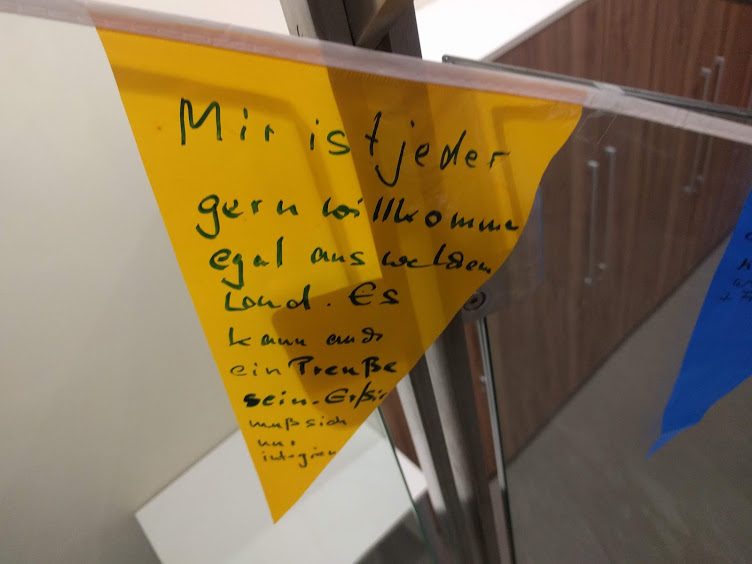 Mir ist jeder
gern willkomme
egal aus welchem
Land. Es
kann auch
ein Preuße
sein. Er/sie
muß sich
nur
integrier